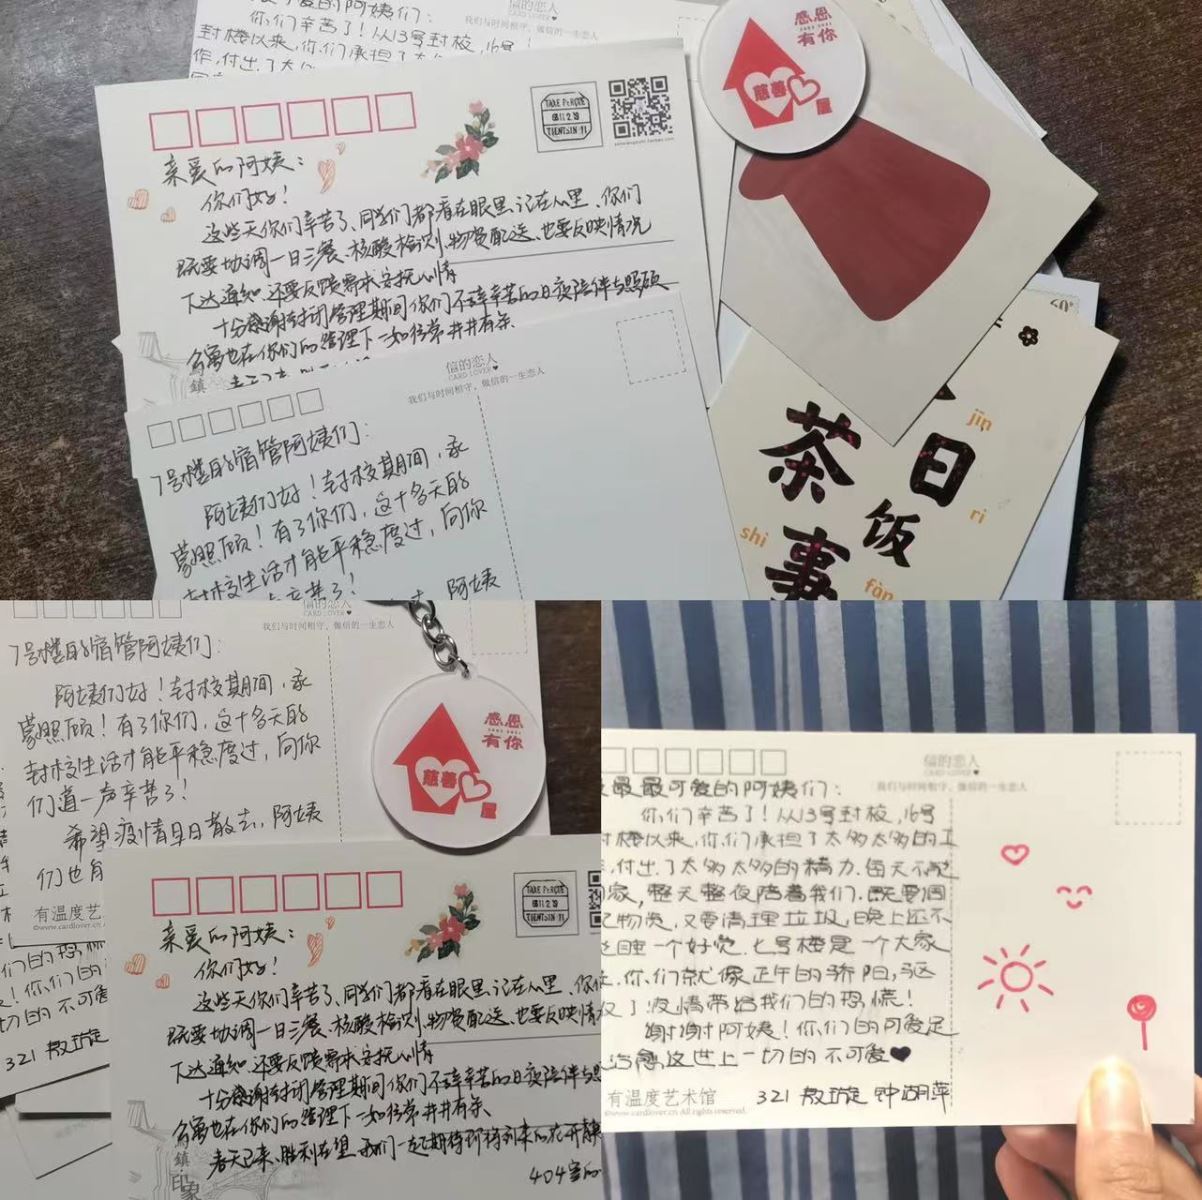 可爱的阿姨们：
你们辛苦了！从13号封校，16号
封楼以来，你们承担了太
作，付出了太
信的恋人
CARD LOVER
我们与时间相守，做信的一生恋人
感恩
有你
慈善
屋
TAKE PERÇUE
TIENTSIN
亲爱的阿姨：
你们好！
这些天你们辛苦了、同学们都看在眼里、记在心里、你们
既要协调一日三餐、核酸检测、物资配送、也要反映情况
下达通知、还要反馈需求、安抚心情
十分感谢封闭管理期间你们不辞辛苦的日夜陪伴与照顾
在你们的管理下一如往常井井有条、
镇
信的恋人
CARD LOVER
我们与时间相守，做信的一生恋人
7号楼的宿管阿姨们：
阿姨们好！封校期间，承
蒙照顾！有了你们，这十多天的
封校生活才能平稳度过，向你
阿姨
60°
茶
事
日
饭
jīn
rì
shì
fàn
信的恋人
CARD LOVER
我们与时间相守，做信的一生恋人
7号楼的宿管阿姨们：
阿姨们好！封校期间，承
蒙照顾！有了你们，这十多天的
封校生活才能平稳度过，向你
们道一声辛苦了！
希望疫情早日散去，阿姨
们也
有温度艺
©www.cardlover.cn
感恩
有你
慈善
屋
切的不可爱
321
TAKE PERÇUE
TIENTSIN
亲爱的阿姨：
你们好！
这些天你们辛苦了、同学们都看在眼里、记在心里、你
既要协调一日三餐、核酸检测、物资配送、也要反映情
下达通知、还要反馈需求、安抚心情
十分感谢封闭管理期间你们不辞辛苦的日夜陪伴与照
在你们的管理下一如往常井井有条、
春天已来、胜利在望、我们一起期待即将到来的花开
镇·印象
404
信的恋人
CARD LOVER
我们与时间相守，做信的一生恋人
最最可爱的阿姨们：
你们辛苦了！从13号封校，16号
封楼以来，你们承担了太多太多的工
，付出了太多太多的精力，每天不能
回家，整天整夜陪着我们，既要调
配物资，又要清理垃圾，晚上还不
能睡一个好觉。七号楼是一个大家
庭，你们就像正午的骄阳，驱
散了疫情带给我们的恐慌！
谢谢阿姨！你们的可爱足
以治愈这世上一切的不可爱
有温度艺术馆
©www.cardlover.cn All rights reserved.
321